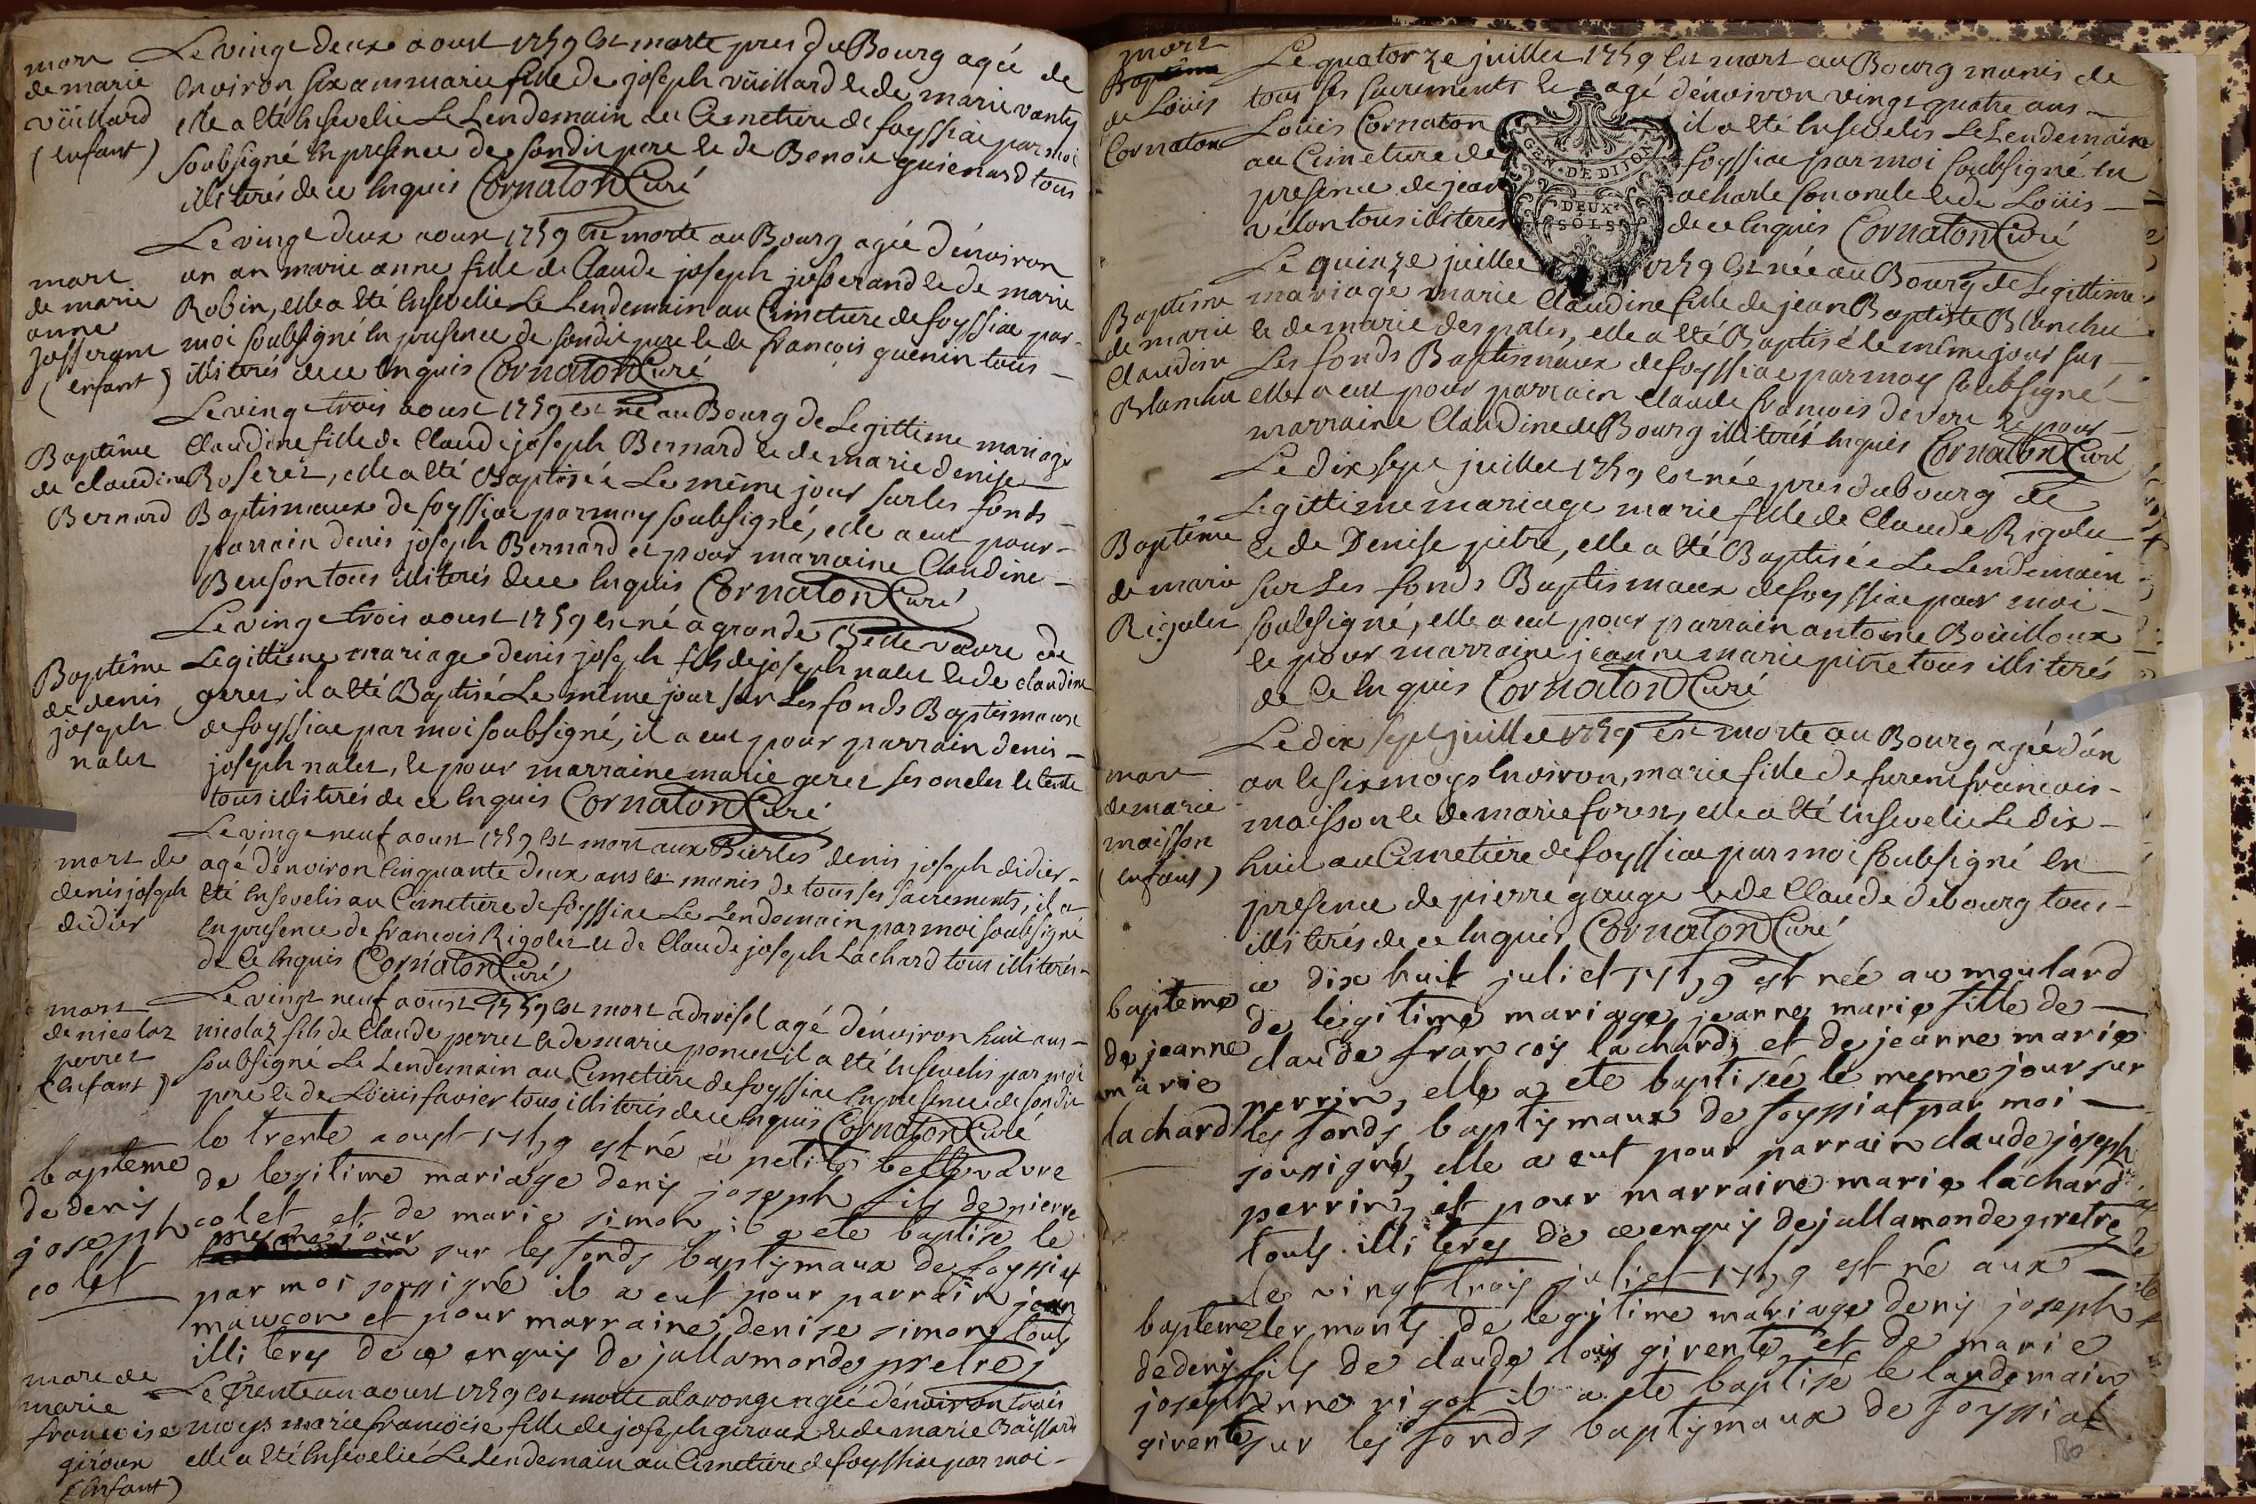 mort
de marie
vüillard
(enfant)
Le vingt deux aoust 1759 est morte pres du Bourg agée de
Environ six ans marie fille de joseph vüillard et de marie vanty
elle a été Ensevelie Le Lendemain au Cimetiere de foyssiac par moi
soubsigné En presence de sondit pere et de Benoit guienard tous
illiterés de ce Enquis Cornaton Curé
mort
de marie
anne
josserant
(enfant)
Le vingt deux aoust 1759 est morte au Bourg agée d'énviron
un an marie anne fille de Claude joseph josserand et de marie
Robin, elle a été Ensevelie Le Lendemain au Cimetiere de foyssiac par
moi soubsigné En presence de sondit pere et de françois guenin tous
illiterés de ce Enquis Cornaton Curé
Baptême
de claudine
Bernard
Le vingt trois aoust 1759 est né au Bourg de Legittime mariage
Claudine fille de Claude joseph Bernard et de marie denise
Roserez, elle a été Baptisée Le même jour sur les fonds
Baptismaux de foyssiac par moy soubsigné, elle a eut pour
parrain denis joseph Bernard et pour marraine Claudine
Benson tous illiterés de ce Enquis Cornaton Curé
Baptême
de denis
joseph
nalet
Le vingt trois aoust 1759 est né a grande Belle vavre de
Legittime mariage denis joseph fils de joseph nalet et de claudine
geret, il a été Baptisé Le même jour sur Les fonds Baptismaux
de foyssiac par moi soubsigné, il a eut pour parrain denis
joseph nalet, et pour marraine marie geret ses oncles et tente
tous illiterés de ce Enquis Cornaton Curé
mort de
denis joseph
didier
Le vingt neuf aoust 1759 est mort aux Bierles denis joseph didier
agé d'énviron Cinquante deux ans et munis de tous ses sacrements, il a
été Ensevelis au Cimetiere de foyssiac Le Lendemain par moi soubsigné
En presence de francois Rigolet et de Claude joseph Lachard tous illiterés
de Ce Enquis Cornaton Curé
mort
de nicolaz
perret
(Enfant)
Le vingt neuf aoust 1759 est mort a droisel agé d'énviron huit ans
nicolaz fils de Claude perret et de marie poncet il a été Ensevelis par moi
soubsigné Le Lendemain au Cimetiere de foyssiac En presence de sondit
pere et de Loüis favier tous illiterés de ce Enquis Cornaton Curé
bapteme
de denis
joseph
colet
le trente aoust 1759 est né a petite belle vavre
de legitime mariage denis joseph fils de pierre
colet et de marie simon il a ete baptisé le
mesme jour sur les fonds baptismaux de foyssiat
par moi soussigné il a eut pour parrain jean
maucon et pour marraine denise simon touts
illiteres de ce enquis de jallamonde pretre
mort de
marie
francoise
giroux
(Enfant)
Le trente un aoust 1759 est morte a la ronge agée d'énviron trois
moys marie francoise fille de joseph giroux et de marie Boissard
elle a été Ensevelie Le Lendemain au Cimetiere de foyssiac par moi
mort
Baptême
de Loüis
Cornaton
Le quatorze juillet 1759 est mort au Bourg munis de
tous ses sacrements et agé d'énviron vingt quatre ans
Loüis Cornaton il a été Ensevelis Le Lendemain
au Cimetiere de foyssiac par moi soubsigné En
presence de jean acharle son oncle et de Loüis
vélon tous illiteres de ce Enquis Cornaton Curé
GEN. DE DIJON
DEUX
SOLS
Baptême
de marie
Claudine
Blanchet
Le quinze juillet 1759 est née au Bourg de Legittime
mariage marie Claudine fille de jean Baptiste Blanchet
et de marie des pales, elle a été Baptisé le même jour sur
Les fonds Baptismaux de foyssiac par moy soubsigné
elle a eut pour parrain claude francois devere et pour
marraine Claudine de Bourg illiterés Enquis Cornaton Curé
Baptême
de marie
Rigolet
Le dix sept juillet 1759 est née pres du bourg de
Legittime mariage marie fille de Claude Rigolet
et de Denise pitre, elle a été Baptisée Le Lendemain
sur Les fonds Baptismaux de foyssiac par moi
soubsigné, elle a eut pour parrain antoine Boüilloux
et pour marraine jeanne marie pitre tous illiterés
de Ce Enquis Cornaton Curé
mort
de marie
moisson
(enfant)
Le dix sept juillet 1759 est morte au Bourg agée d'ún
an et six moys Environ, marie fille de furent francois
moisson et de marie foret, elle a été Ensevelie Le dix
huit au Cimetiere de foyssiac par moi soubsigné En
presence de pierre gauge et de Claude debourg tous
illiterés de ce Enquis Cornaton Curé
bapteme
de jeanne
marie
lachard
ce dix huit juliet 1759 est née au moulard
de legitime mariage jeanne marie fille de
claude francois lachard, et de jeanne marie
perrin, elle a ete baptisée le mesme jour sur
les fonds baptismaux de foyssiat par moi
soussigné, elle a eut pour parrain claude joseph
perrin, et pour marraine marie lachard
touts illiteres de ce enquis de jallamonde pretre
bapteme
de denis
joseph
girente
le vingt trois juliet 1759 est né aux
ler monts de legitime mariage denis joseph
fils de claude louis girente, et de marie
anne rigot il a ete baptisé le landemain
sur les fonds baptismaux de foyssiat